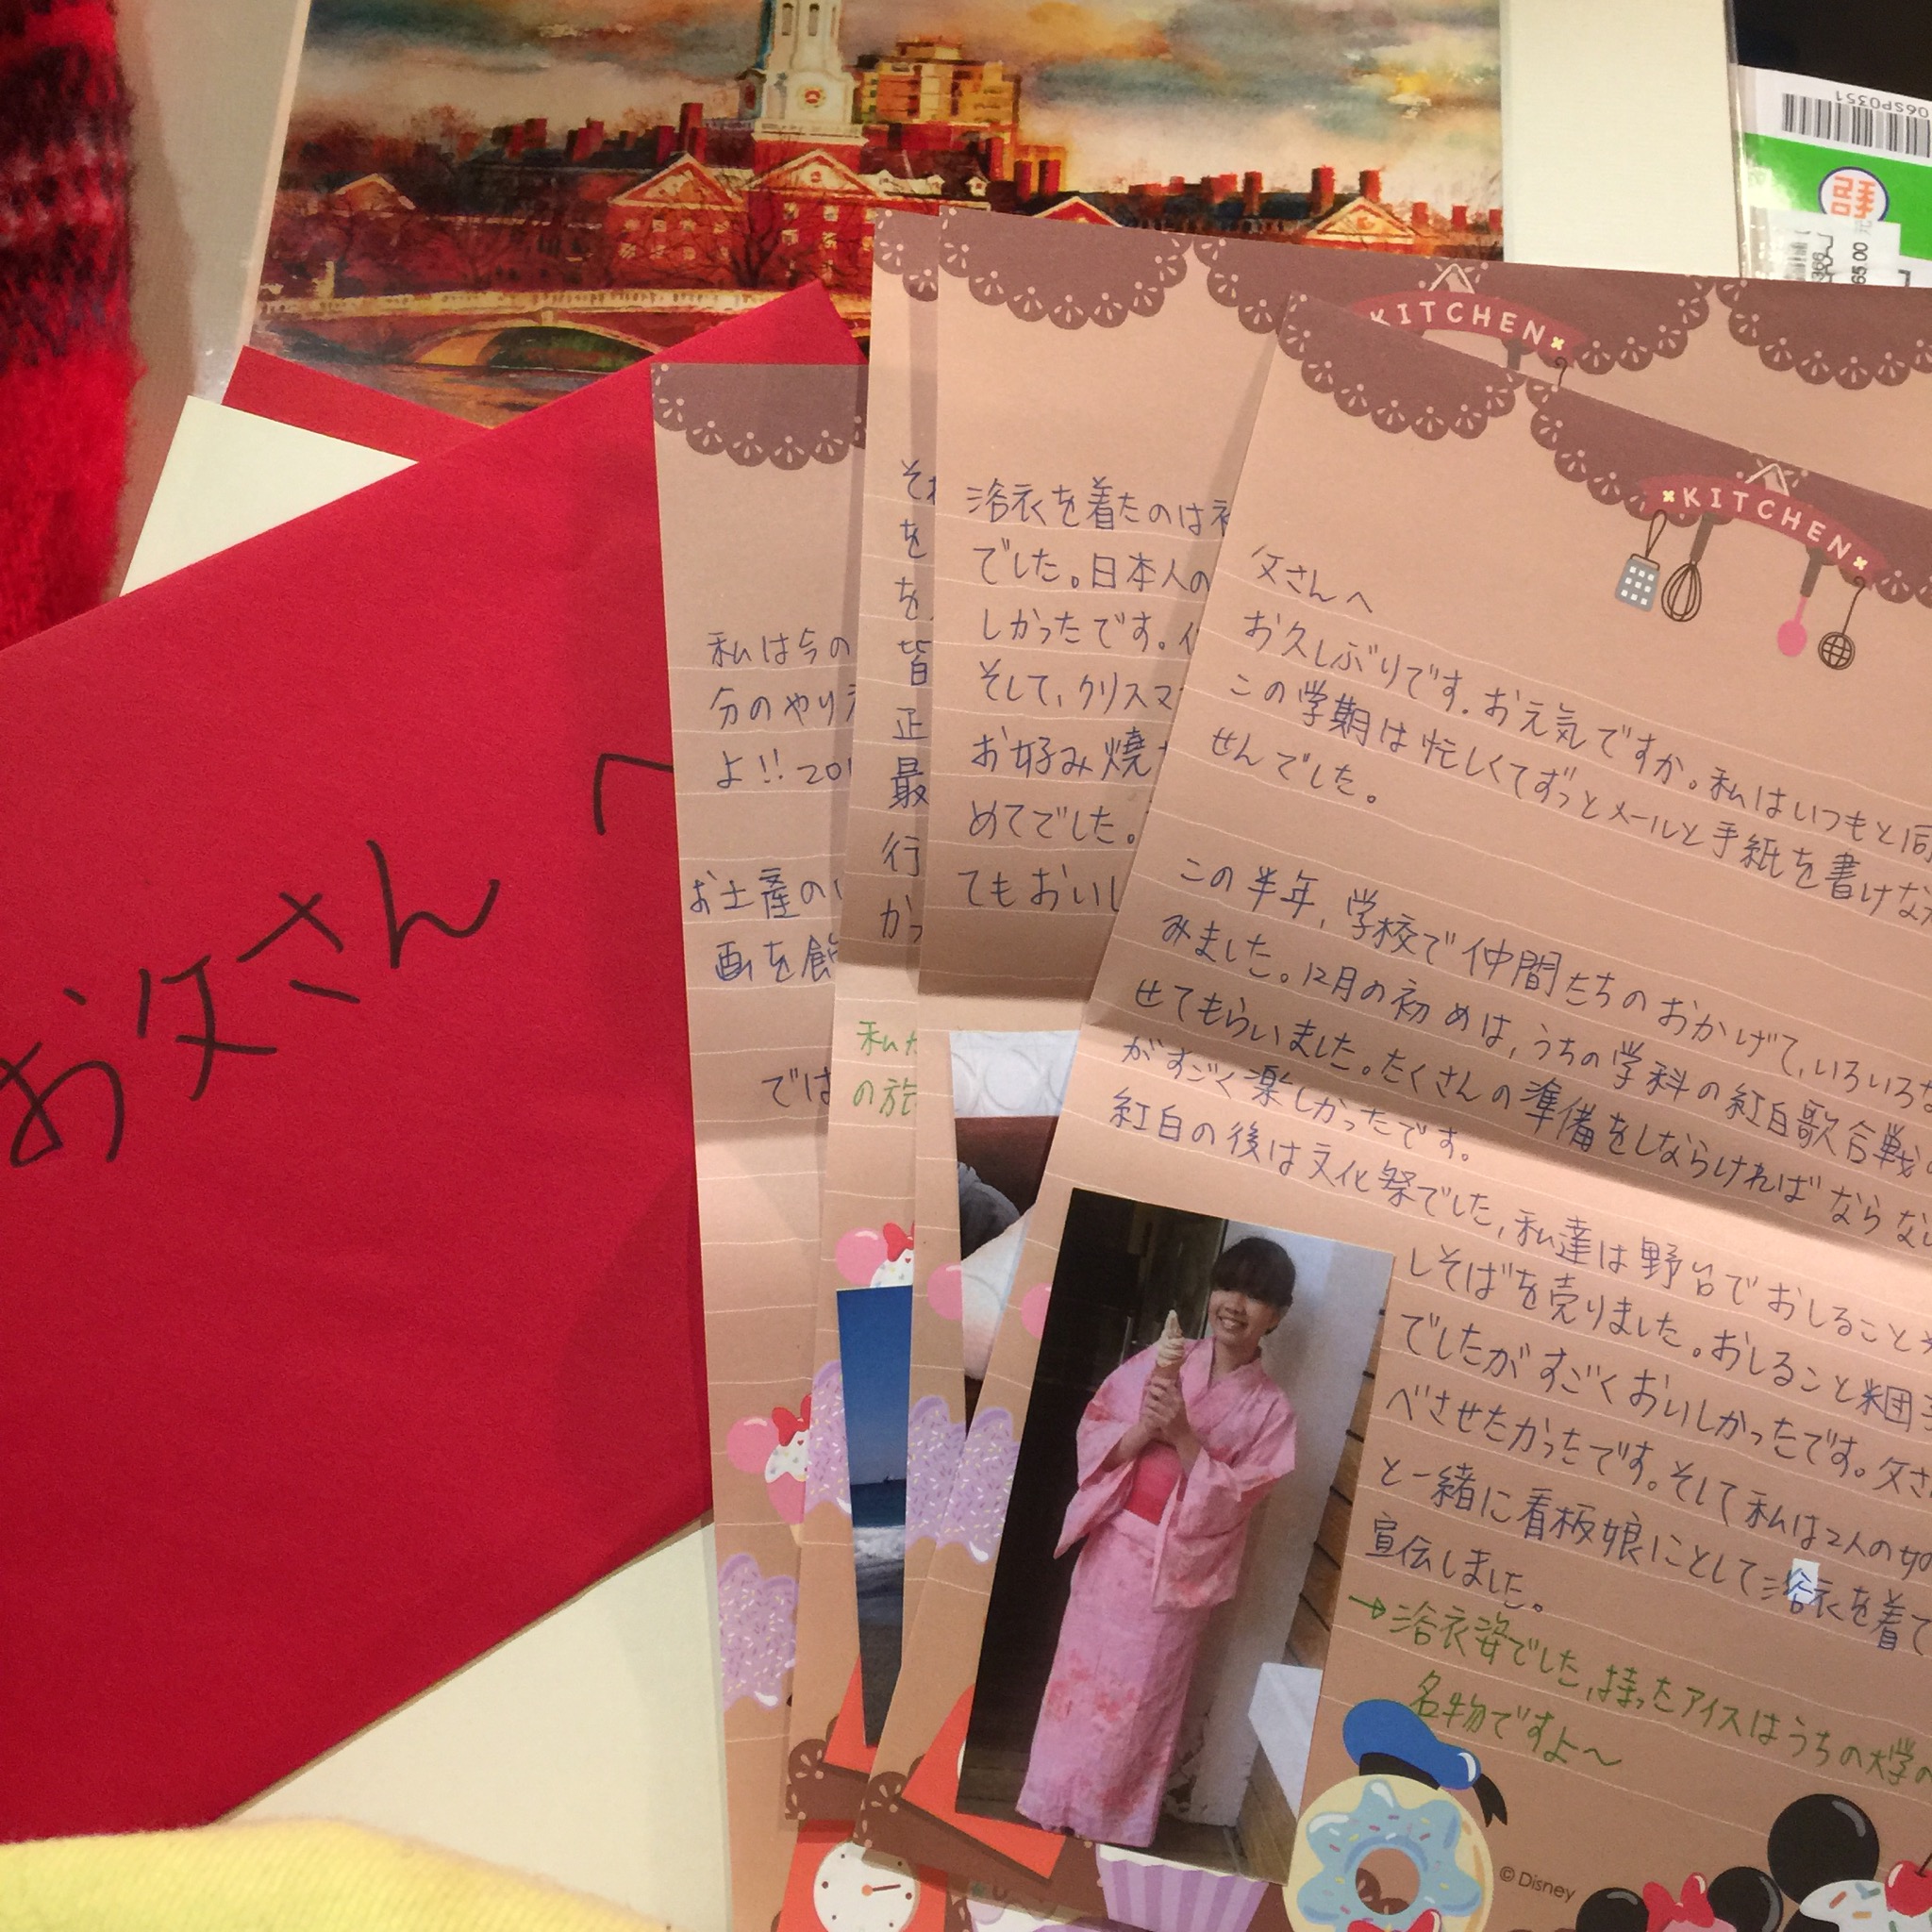 お父さんへ
私は今の
分のやり
よ!!201
お土産の
画を飾
では
私た
の旅
それ
を
を
皆
正
最
行
かっ
浴衣を着たのは初
でした。日本人の
しかったです。
そして、クリスマ
お好み焼
めてでした。
てもおいし
KITCHEN
KITCHEN
父さんへ
お久しぶりです。お元気ですか。私はいつもと同
この学期は忙しくてずっとメールと手紙を書けな
せんでした。
この半年,学校で仲間たちのおかげで,いろいろな
みました。12月の初めは,うちの学科の紅白歌合戦
せてもらいました。たくさんの準備をしならければならな
がすごく楽しかったです。
紅白の後は文化祭でした,私達は野台でおしること
しそばを売りました。おしること米団
でしたがすごくおいしかったです。父さ
べさせたかったです。そして私は2人の
と一緒に看板娘にとして浴衣を着て
宣伝しました。
→浴衣姿でした,持ったアイスはうちの大学の
名物ですよ〜
© Disney
06SP0351
65.00